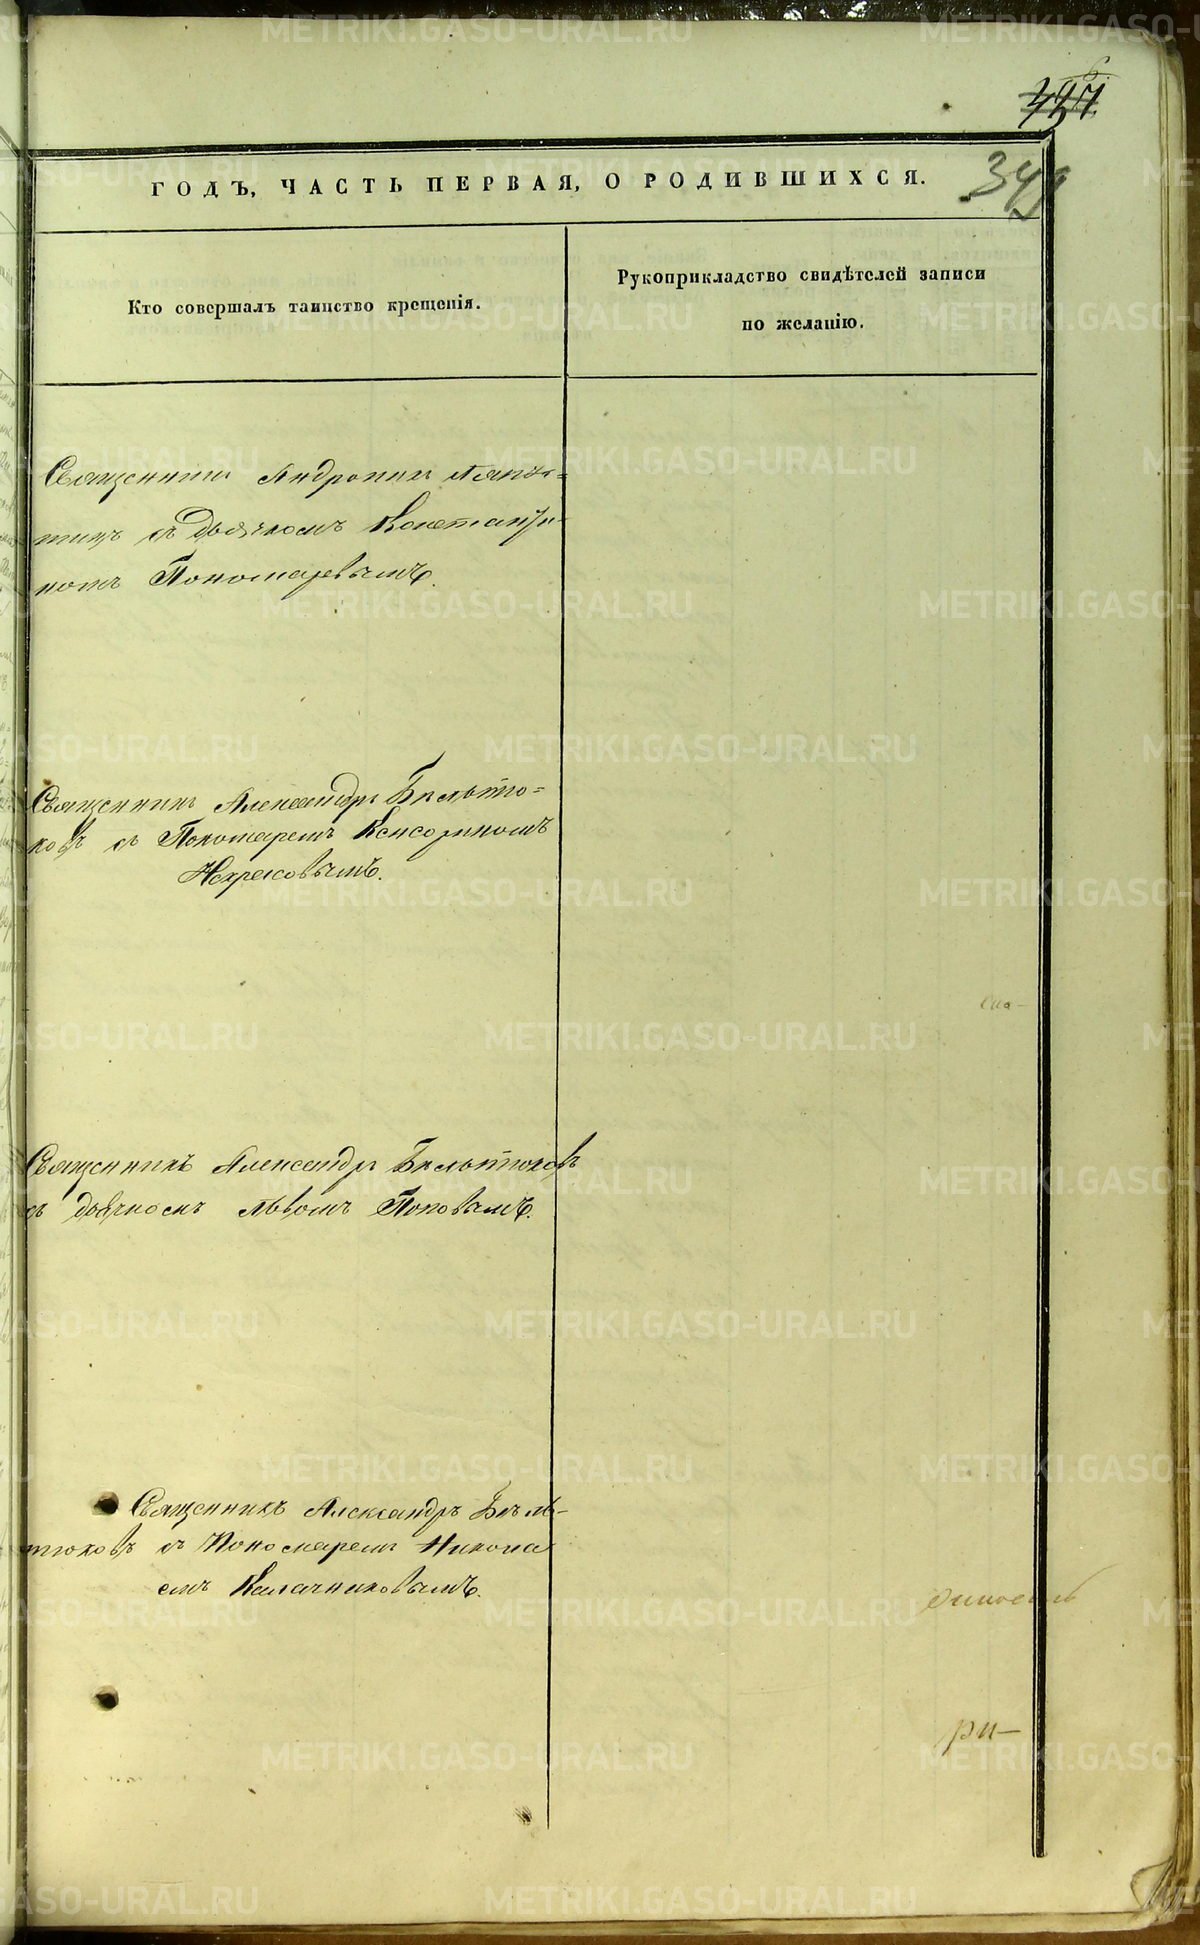 ГОДЪ, ЧАСТЬ ПЕРВАЯ, О РОДИВШИХСЯ.
Кто совершалъ таинство крещенія.
Рукоприкладство свидѣтелей записи
по желанію.
Священникъ Андроникъ
съ дьячкомъ Константи-
номъ Пономаревымъ.
Священникъ Александръ Бѣльтю-
ковъ съ Пономаремъ
Некрасовымъ.
Священникъ Александръ Бѣльтюковъ
съ дьячкомъ Львомъ Поповымъ.
Священникъ Александръ Бѣль-
тюковъ съ Пономаремъ Никола
емъ Калачниковымъ.
ри-
METRIKI.GASO-URAL.RU